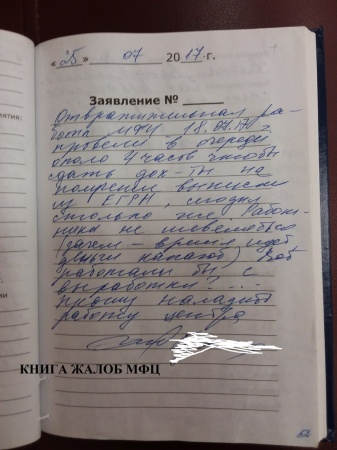 «25» 07 2017 г.
Заявление №
Отвратительная ра-
бота МФЦ 18.07.17 г.
провели в очереди
около 4 часов чтобы
сдать док-ты на
получение выписки
из ЕГРН, сегодня
столько же. Работ-
ники не шевелятся
(зачем - время идет
деньги капают)
работали бы с
выработки? ...
Прошу наладить
работу центра
КНИГА ЖАЛОБ МФЦ
62